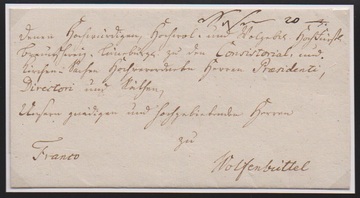 20
Denen Hochwürdigen, Hochwol- und Wolgebl. Hochfürstl.
Braunschweig-Lüneburg. zu den Consistorial- und
Kirchen-Sachen Hochverordneten Herren Praesidenti,
Directori und Räthen,
Unsern gnädigen und hochgebietenden Herren
zu
Franco
Wolfenbüttel